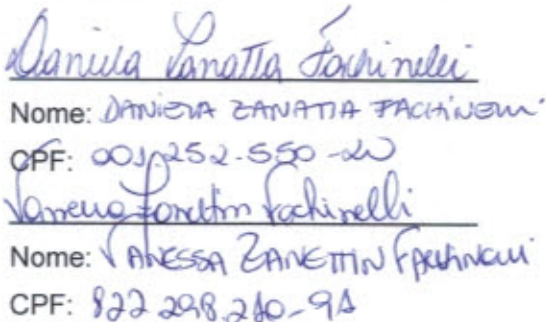 Daniela Zanatta Fachinelli
Nome: DANIELA ZANATTA FACHINELLI
CPF: 001.252.550-20
Vanessa Zanettin Fachinelli
Nome: VANESSA ZANETTIN FACHINELLI
CPF: 822 298 210-91